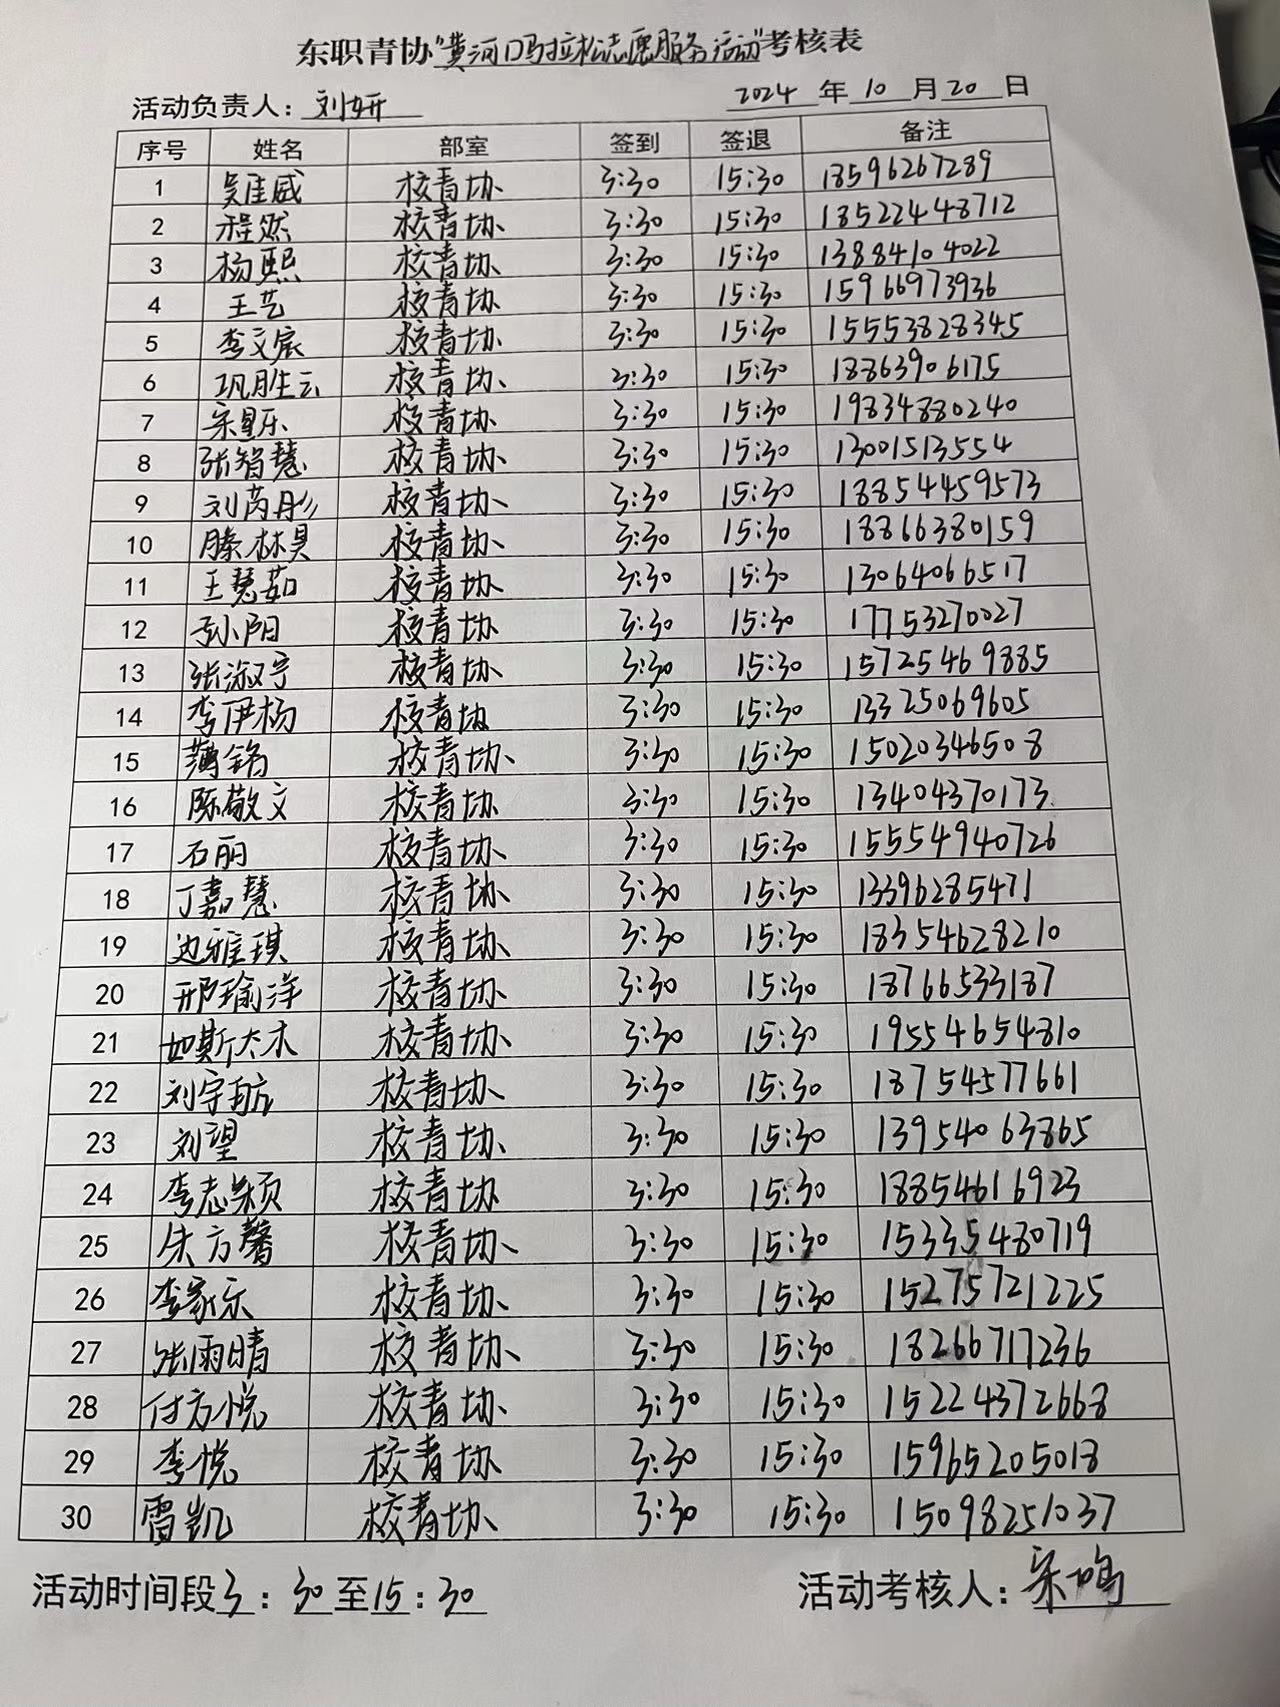 东职青协“黄河口马拉松志愿服务活动”考核表
活动负责人：刘妍 2024 年 10 月 20 日
序号 姓名 部室 签到 签退 备注
1 吴佳威 校青协 3:30 15:30 18596267289
2 程然 校青协 3:30 15:30 18522448712
3 杨熙 校青协 3:30 15:30 13884104022
4 王艺 校青协 3:30 15:30 15966973936
5 李文宸 校青协 3:30 15:30 15553828345
6 巩胜云 校青协 3:30 15:30 18863906175
7 宋昱乐 校青协 3:30 15:30 19834880240
8 张智慧 校青协 3:30 15:30 13001513554
9 刘芮彤 校青协 3:30 15:30 18854459573
10 滕林昊 校青协 3:30 15:30 18866380159
11 王慧茹 校青协 3:30 15:30 13064066517
12 孙阳 校青协 3:30 15:30 17753270027
13 张淑宁 校青协 3:30 15:30 15725469885
14 李伊杨 校青协 3:30 15:30 13325069605
15 薄铭 校青协 3:30 15:30 15020346508
16 陈敬文 校青协 3:30 15:30 13404370173
17 石丽 校青协 3:30 15:30 15554940726
18 丁嘉慧 校青协 3:30 15:30 13396285471
19 边雅琪 校青协 3:30 15:30 18354628210
20 邢瑜洋 校青协 3:30 15:30 18766533187
21 如斯太木 校青协 3:30 15:30 19554654810
22 刘宇航 校青协 3:30 15:30 18754577661
23 刘望 校青协 3:30 15:30 13954063865
24 李志颖 校青协 3:30 15:30 18854616923
25 朱方馨 校青协 3:30 15:30 15335480719
26 李家乐 校青协 3:30 15:30 15275721225
27 张雨晴 校青协 3:30 15:30 18266717236
28 付方悦 校青协 3:30 15:30 15224372668
29 李悦 校青协 3:30 15:30 15965205018
30 雷凯 校青协 3:30 15:30 15098251037
活动时间段3：30至15：30 活动考核人：宋鸣